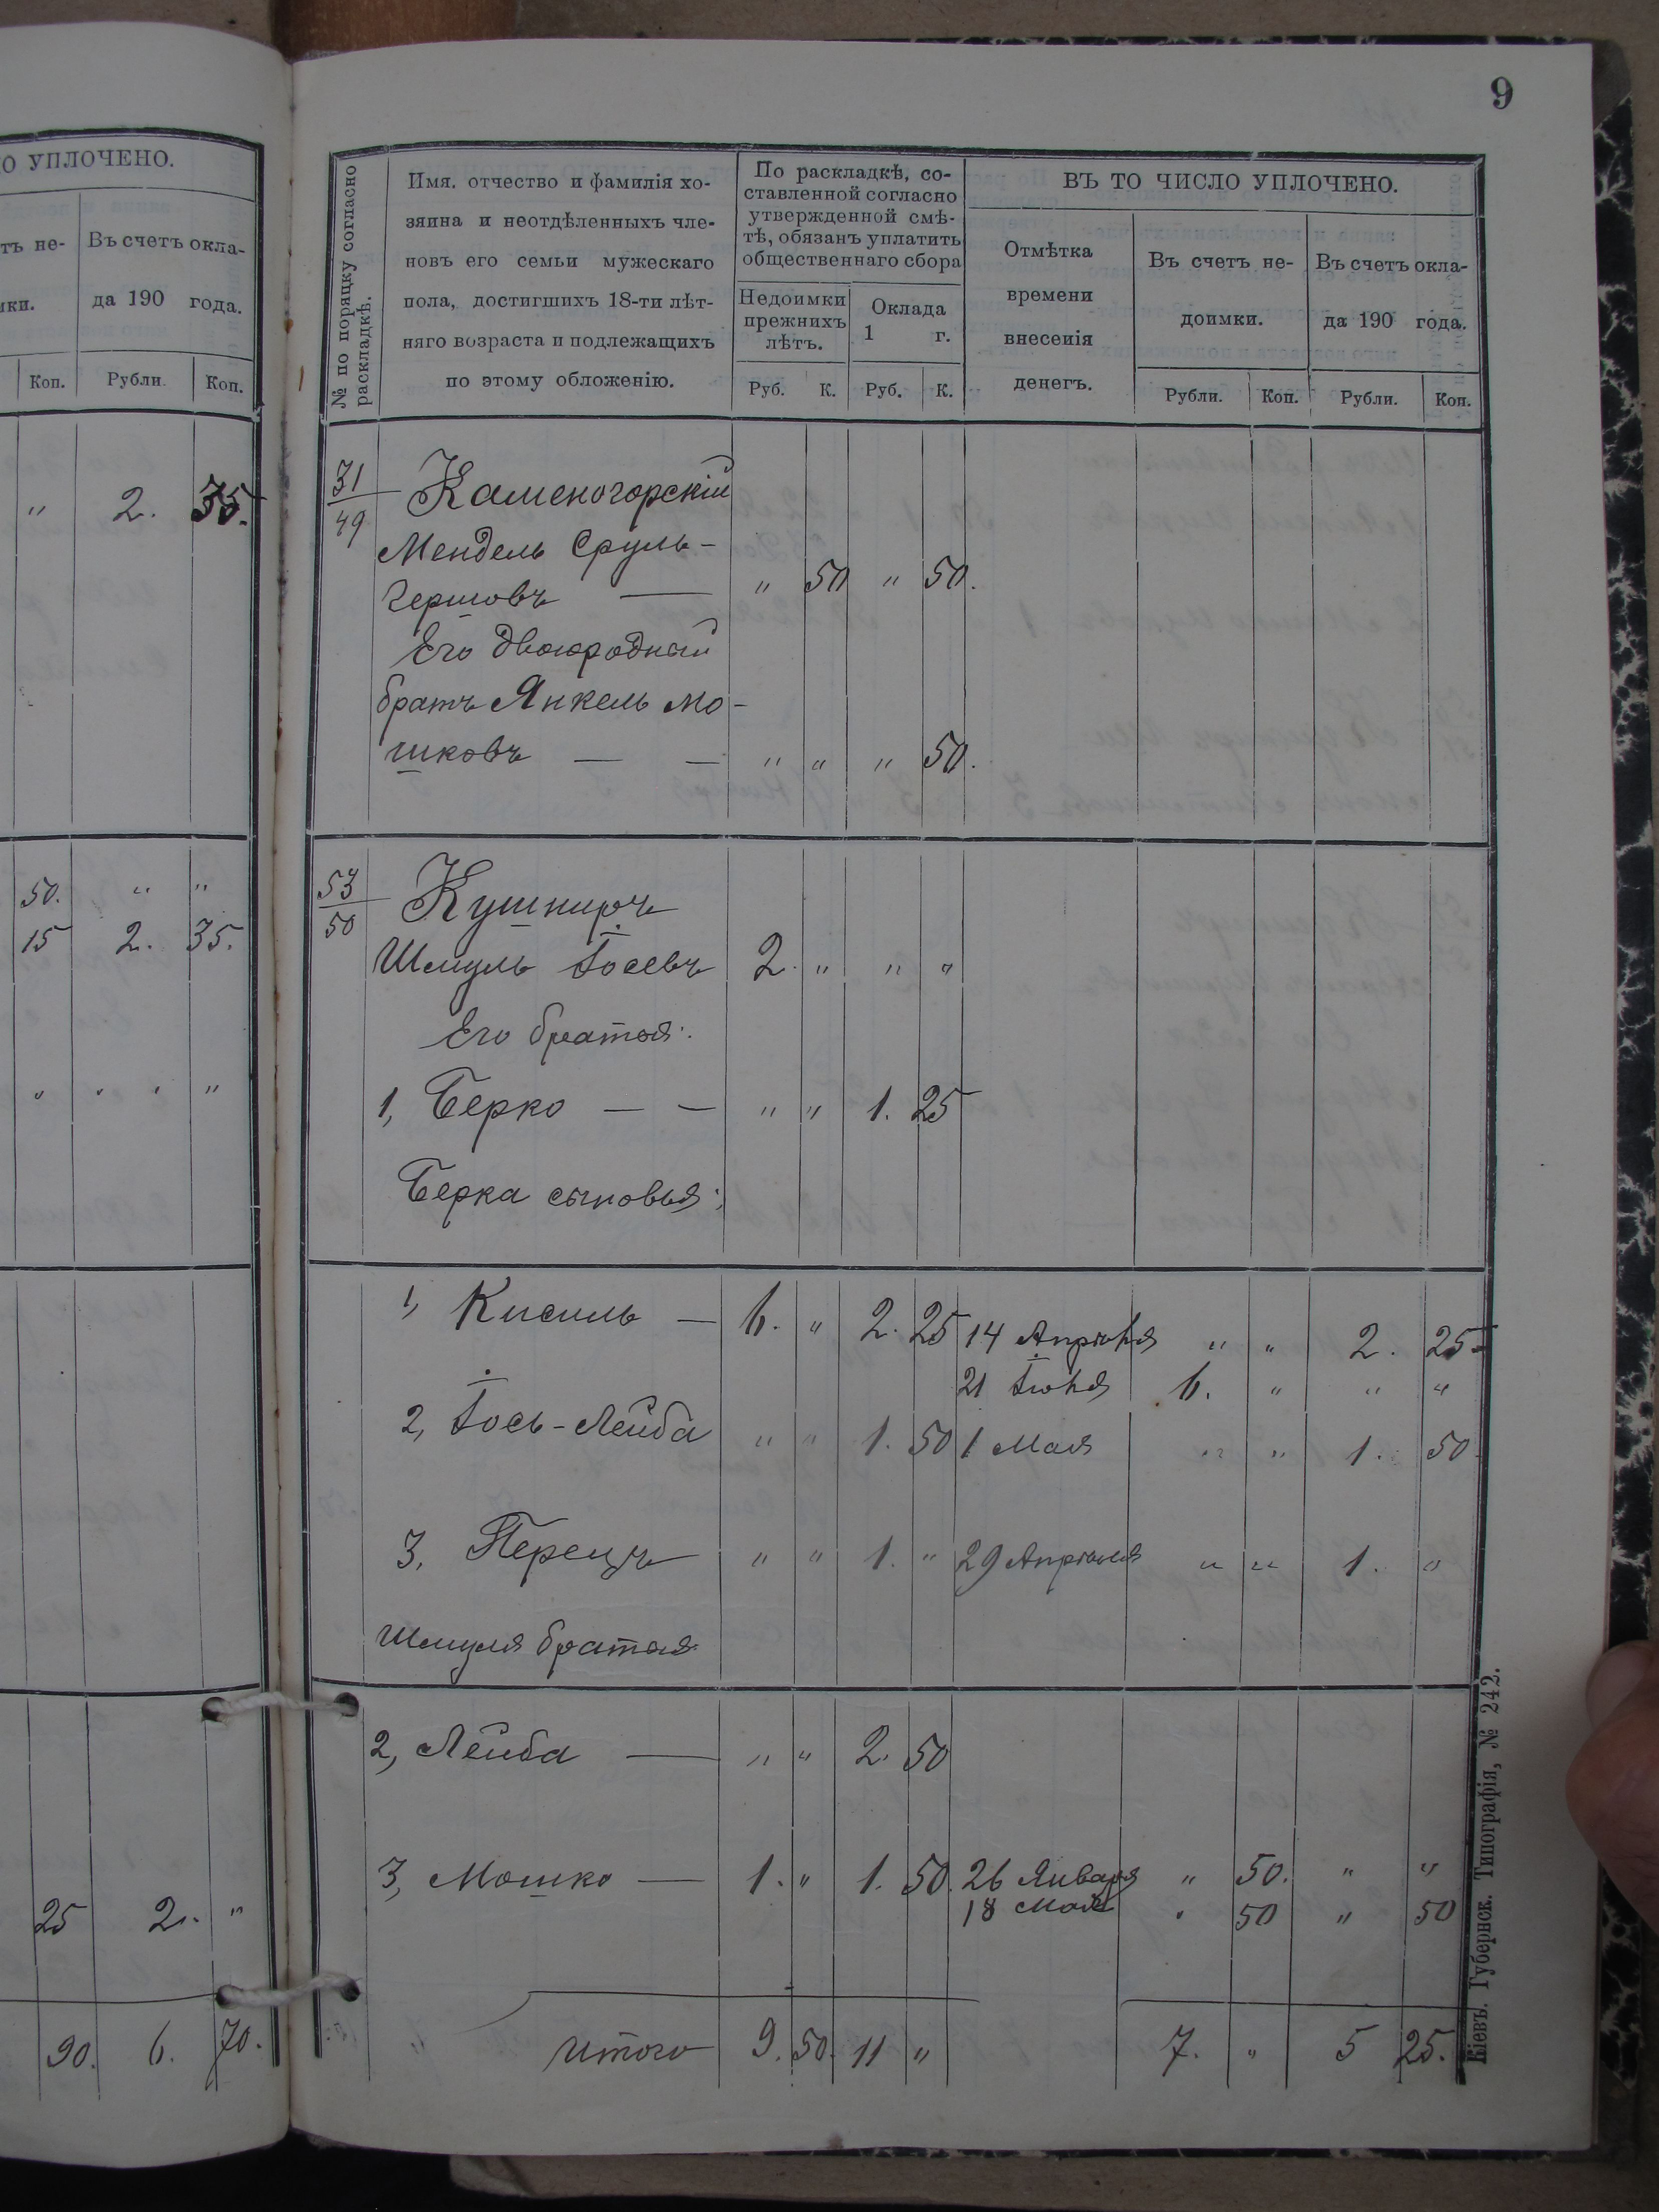 О УПЛОЧЕНО.
тъ не-
Въ счетъ окла-
мки.
да 190 года.
Коп. Рубли. Коп.
" 2. 35.
50. " "
15 2. 35.
" " " "
25 2. "
90. 6. 70.
9
№ по порядку согласно
раскладкѣ.
Имя, отчество и фамилія хо-
зяина и неотдѣленныхъ чле-
новъ его семьи мужескаго
пола, достигшихъ 18-ти лѣт-
няго возраста и подлежащихъ
по этому обложенію.
По раскладкѣ, со-
ставленной согласно
утвержденной смѣ-
тѣ, обязанъ уплатить
общественнаго сбора
Недоимки
прежнихъ
лѣтъ.
Оклада
1 г.
Руб. К. Руб. К.
ВЪ ТО ЧИСЛО УПЛОЧЕНО.
Отмѣтка
времени
внесенія
денегъ.
Въ счетъ не-
доимки.
Въ счетъ окла-
да 190 года.
Рубли. Коп. Рубли. Коп.
31
49
Каменогорскій
Мендель Сруль-
Гершовъ — " 50 " 50.
Его двоюродный
братъ Янкель Мо-
шковъ — — " " " 50.
53
50
Кушниръ
Шмуль Іосевъ 2. " " "
Его братья:
1, Берко — — " " 1. 25
Берка сыновья:
1, Кисиль — 6. " 2. 25 14 Апрѣля " " 2. 25
21 Іюня 6. " " "
2, Іось-Лейба " " 1. 50 1 Мая " " 1. 50
3, Перецъ " " 1. " 29 Апрѣля " " 1. "
Шмуля братья:
2, Лейба — " " 2. 50
3, Мошко — 1. " 1. 50. 26 Января " 50. " "
18 Мая " 50 " 50
Итого 9. 50. 11 " 7. " 5 25.
Кіевъ. Губернск. Типографія, № 242.